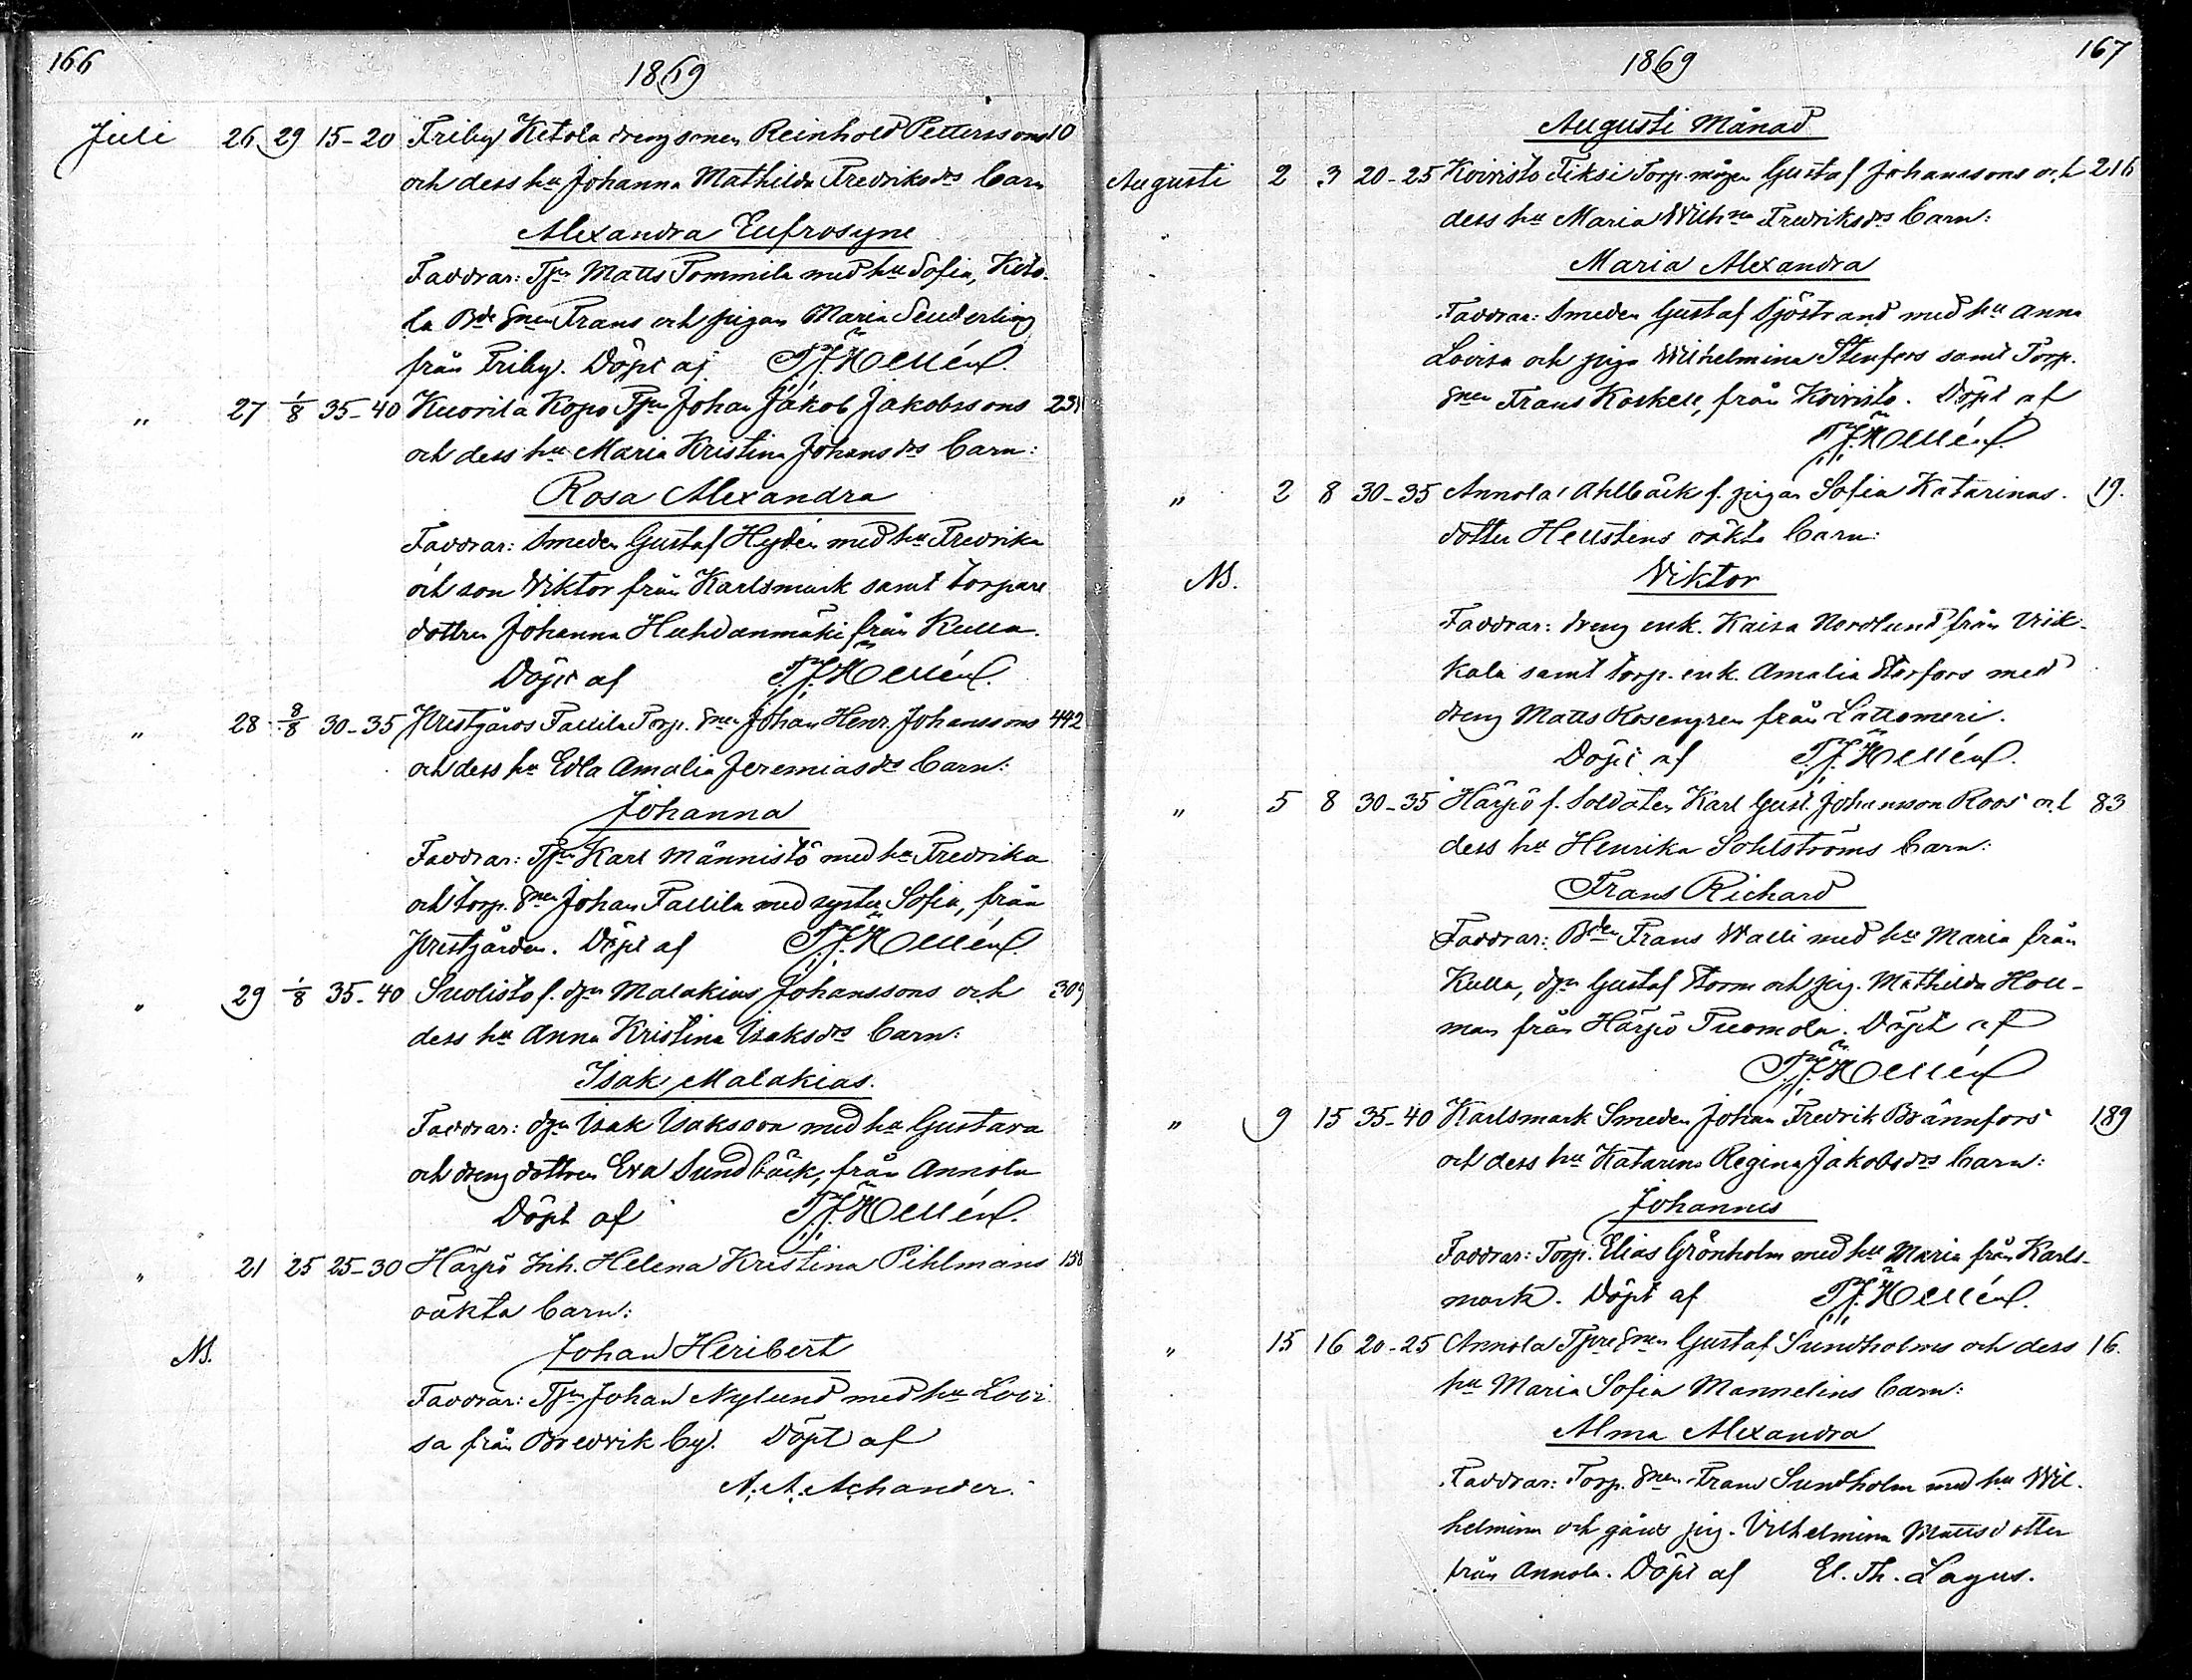 166
1869
Juli 26 29 15-20 Friby Ketola drengsonen Reinhold Petterssons 10
och dess hu Johanna Mathilda Fredriksdrs barn
Alexandra Eufrosyne
Faddrar: Tjn Matts Tommila med hu Sofia, Keto-
la Bde Snen Frans och pigan Maria Senderling
från Friby. Döpt af T.J. Hellén.
" 27 1/8 35-40 Kuorila Kopo Tjn Johan Jakob Jakobssons
och dess hu Maria Kristina Johansdrs barn:
Rosa Alexandra
Faddrar: Smeden Gustaf Hydén med hu Fredrika
och son Viktor från Karlsmark samt torpare
dottren Johanna Huhdanmäki från Kulla.
Döpt af T.J. Hellén.
" 28 8/8 30-35 Prestgårds Tallila Torp. Snen Johan Henr. Johanssons 442
och dess hu Edla Amalia Jeremiasdrs barn:
Johanna
Faddrar: Tjn Karl Männistö med hu Fredrika
och torp. Snen Johan Tallila med syster Sofia, från
Prestgården. Döpt af T.J. Hellén.
" 29 1/8 35-40 Suolisto f. djn Malakias Johanssons och 309
dess hu Anna Kristina Isaksdrs barn:
Isak Malakias.
Faddrar: djn Isak Isaksson med hu Gustava
och dreng dottren Eva Sundbäck, från Annola
Döpt af T.J. Hellén.
" 21 25 25-30 Härpö Inh. Helena Kristina Pihlmans 158
oäkta barn:
NB. Johan Heribert
Faddrar: Tjn Johan Nylund med hu Lovi-
sa från Bredvik by. Döpt af
A. A. Achander.
167
1869
Augusti Månad
Augusti 2 3 20-25 Koivisto Fiksi Torp. mågen Gustaf Johanssons och 216
dess hu Maria Wilhna Fredriksdrs barn:
Maria Alexandra
Faddrar: Smeden Gustaf Sjöstrand med hu Anna
Lovisa och piga Wilhelmina Stenfors samt Torp.
Snen Frans Koskell, från Koivisto. Döpt af
T.J. Hellén.
" 2 8 30-35 Annola Ahlbäck f. pigan Sofia Katarinas- 19.
dotter Hellstens oäkta barn:
NB. Viktor
Faddrar: dreng enk. Kaisa Nordlund från Viik-
kala samt torp. enk. Amalia Storfors med
dreng Matts Rosengren från Lattomeri.
Döpt af T.J. Hellén.
" 5 8 30-35 Härpö f. Soldaten Karl Gust. Johansson Roos och 83
dess hu Henrika Sohlströms barn:
Frans Richard
Faddrar: Bden Frans Walli med hu Maria från
Kulla, djn Gustaf Storm och pig. Mathilda Holl-
man från Härpö Tuomola. Döpt af
T.J. Hellén
" 9 15 35-40 Karlsmark Smeden Johan Fredrik Brännfors 189
och dess hu Katarina Regina Jakobsdrs barn:
Johannes
Faddrar: Torp. Elias Grönholm med hu Maria från Karls-
mark. Döpt af T.J. Hellén.
" 15 16 20-25 Annola Tjpre Snen Gustaf Sundholms och dess 16.
hu Maria Sofia Mannelins barn:
Alma Alexandra
Faddrar: Torp. Snen Frans Sundholm med hu Wil-
helmina och gårds pig. Vilhelmina Mattsdotter
från Annola. Döpt af El. Th. Lagus.